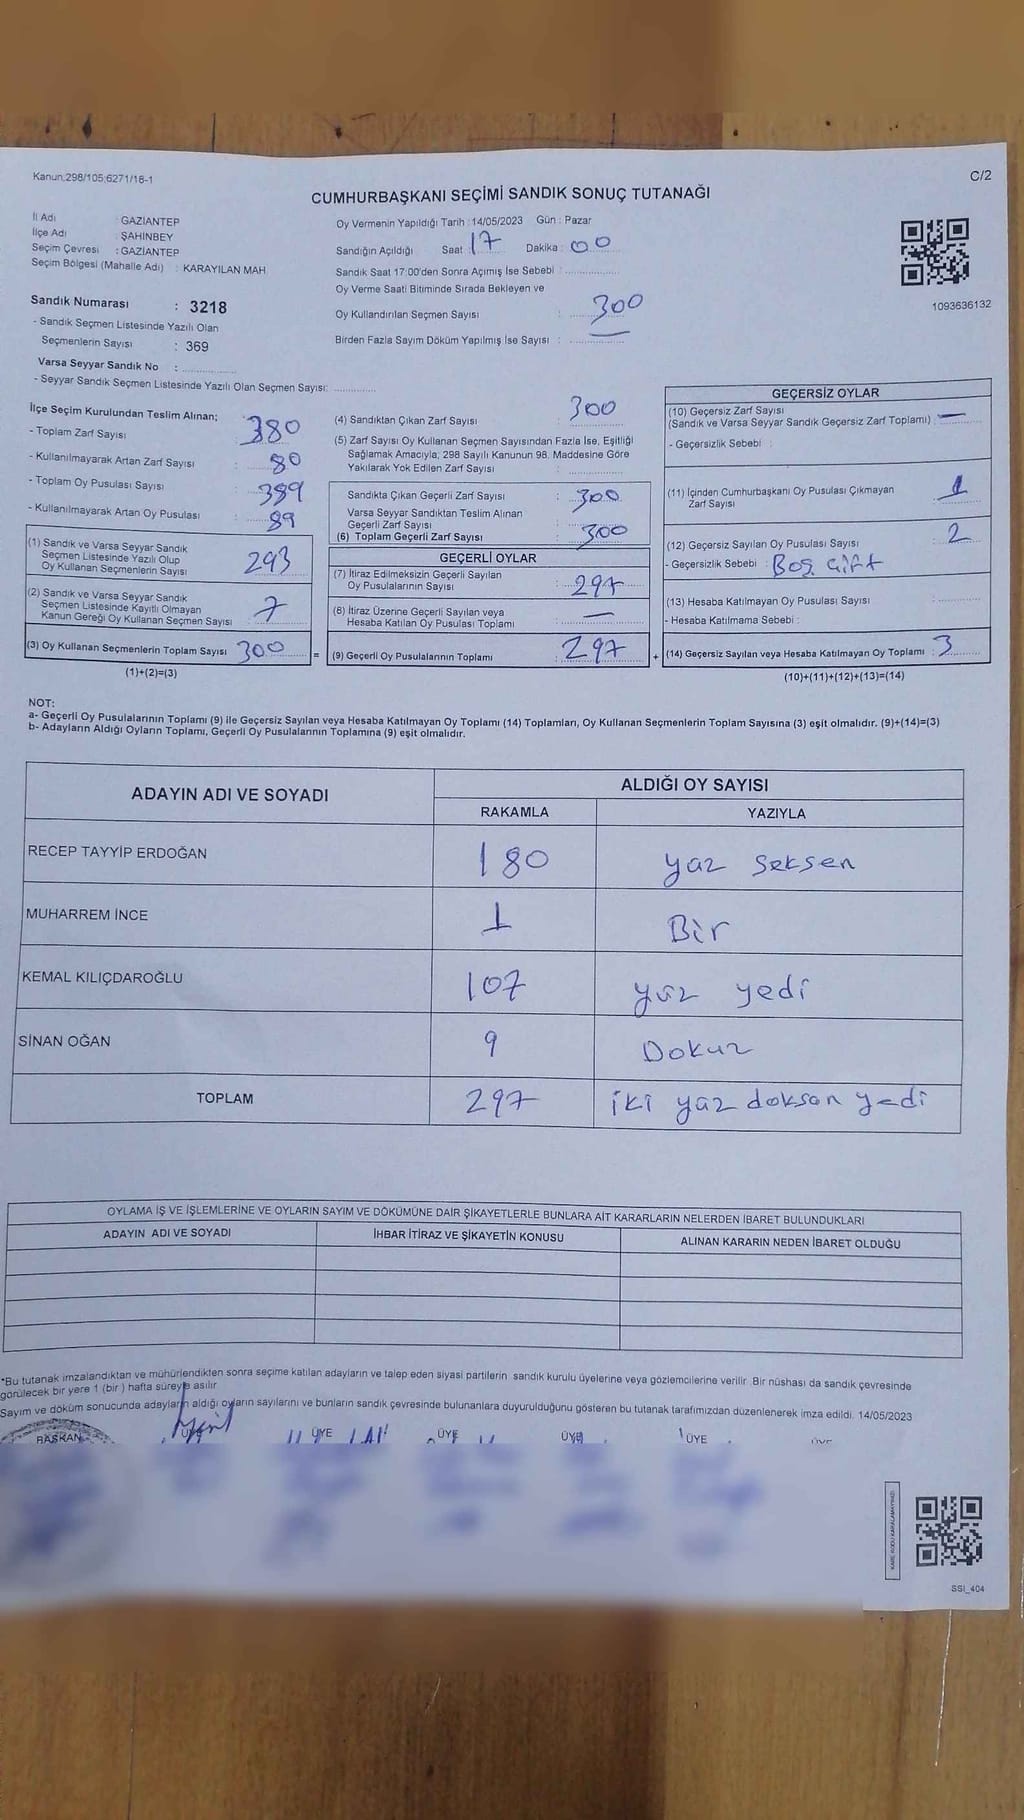 Kanun;298/105;6271/16-1
C/2
CUMHURBAŞKANI SEÇİMİ SANDIK SONUÇ TUTANAĞI
İl Adı : GAZİANTEP
İlçe Adı : ŞAHİNBEY
Seçim Çevresi : GAZİANTEP
Seçim Bölgesi (Mahalle Adı) : KARAYILAN MAH.
Oy Vermenin Yapıldığı Tarih : 14/05/2023 Gün : Pazar
Sandığın Açıldığı Saat 17 Dakika : 00
Sandık Saat 17:00'den Sonra Açımış İse Sebebi :
Oy Verme Saati Bitiminde Sırada Bekleyen ve
Oy Kullandırılan Seçmen Sayısı : 300
Birden Fazla Sayım Döküm Yapılmış İse Sayısı : —
1093636132
Sandık Numarası : 3218
- Sandık Seçmen Listesinde Yazılı Olan
Seçmenlerin Sayısı : 369
Varsa Seyyar Sandık No :
- Seyyar Sandık Seçmen Listesinde Yazılı Olan Seçmen Sayısı:
İlçe Seçim Kurulundan Teslim Alınan;
- Toplam Zarf Sayısı : 380
- Kullanılmayarak Artan Zarf Sayısı : 80
- Toplam Oy Pusulası Sayısı : 389
- Kullanılmayarak Artan Oy Pusulası : 89
(1) Sandık ve Varsa Seyyar Sandık
Seçmen Listesinde Yazılı Olup
Oy Kullanan Seçmenlerin Sayısı : 293
(2) Sandık ve Varsa Seyyar Sandık
Seçmen Listesinde Kayıtlı Olmayan
Kanun Gereği Oy Kullanan Seçmen Sayısı : 7
(3) Oy Kullanan Seçmenlerin Toplam Sayısı : 300
(1)+(2)=(3)
(4) Sandıktan Çıkan Zarf Sayısı : 300
(5) Zarf Sayısı Oy Kullanan Seçmen Sayısından Fazla İse, Eşitliği
Sağlamak Amacıyla; 298 Sayılı Kanunun 98. Maddesine Göre
Yakılarak Yok Edilen Zarf Sayısı :
Sandıkta Çıkan Geçerli Zarf Sayısı : 300
Varsa Seyyar Sandıktan Teslim Alınan
Geçerli Zarf Sayısı :
(6) Toplam Geçerli Zarf Sayısı : 300
GEÇERLİ OYLAR
(7) İtiraz Edilmeksizin Geçerli Sayılan
Oy Pusulalarının Sayısı : 297
(8) İtiraz Üzerine Geçerli Sayılan veya
Hesaba Katılan Oy Pusulası Toplamı : —
= (9) Geçerli Oy Pusulalarının Toplamı : 297 +
GEÇERSİZ OYLAR
(10) Geçersiz Zarf Sayısı
(Sandık ve Varsa Seyyar Sandık Geçersiz Zarf Toplamı) : —
- Geçersizlik Sebebi :
(11) İçinden Cumhurbaşkanı Oy Pusulası Çıkmayan
Zarf Sayısı : 1
(12) Geçersiz Sayılan Oy Pusulası Sayısı : 2
- Geçersizlik Sebebi : Boş Çift
(13) Hesaba Katılmayan Oy Pusulası Sayısı :
- Hesaba Katılmama Sebebi :
(14) Geçersiz Sayılan veya Hesaba Katılmayan Oy Toplamı : 3
(10)+(11)+(12)+(13)=(14)
NOT:
a- Geçerli Oy Pusulalarının Toplamı (9) ile Geçersiz Sayılan veya Hesaba Katılmayan Oy Toplamı (14) Toplamları, Oy Kullanan Seçmenlerin Toplam Sayısına (3) eşit olmalıdır. (9)+(14)=(3)
b- Adayların Aldığı Oyların Toplamı, Geçerli Oy Pusulalarının Toplamına (9) eşit olmalıdır.
ADAYIN ADI VE SOYADI ALDIĞI OY SAYISI
RAKAMLA YAZIYLA
RECEP TAYYİP ERDOĞAN 180 yüz seksen
MUHARREM İNCE 1 Bir
KEMAL KILIÇDAROĞLU 107 yüz yedi
SİNAN OĞAN 9 Dokuz
TOPLAM 297 iki yüz doksan yedi
OYLAMA İŞ VE İŞLEMLERİNE VE OYLARIN SAYIM VE DÖKÜMÜNE DAİR ŞİKAYETLERLE BUNLARA AİT KARARLARIN NELERDEN İBARET BULUNDUKLARI
ADAYIN ADI VE SOYADI İHBAR İTİRAZ VE ŞİKAYETİN KONUSU ALINAN KARARIN NEDEN İBARET OLDUĞU
*Bu tutanak imzalandıktan ve mühürlendikten sonra seçime katılan adayların ve talep eden siyasi partilerin sandık kurulu üyelerine veya gözlemcilerine verilir. Bir nüshası da sandık çevresinde
görülecek bir yere 1 (bir ) hafta süreyle asılır.
Sayım ve döküm sonucunda adayların aldığı oyların sayılarını ve bunların sandık çevresinde bulunanlara duyurulduğunu gösteren bu tutanak tarafımızdan düzenlenerek imza edildi. 14/05/2023
BAŞKAN ÜYE ÜYE ÜYE ÜYE ÜYE
KARE KODU KARALAMAYINIZ!
SSI_404